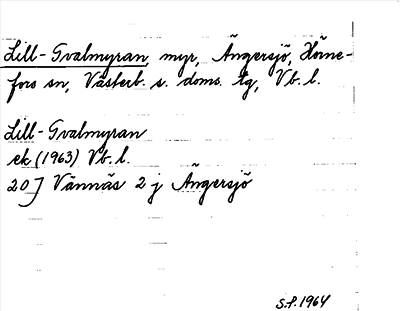 Lill-Tvalmyran, myr, Ängersjö, Hörne-
fors sn, Västerb. s. doms. tg, Vb. l.
Lill-Tvalmyran
ek (1963) Vb. l.
20 J Vännäs 2 j Ängersjö
S.P. 1964